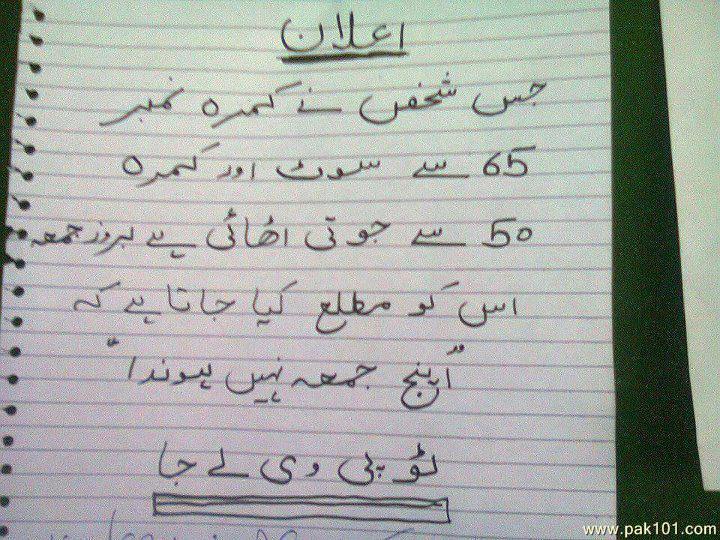 اعلان
جس شخص نے کمرہ نمبر
65 سے سوٹ اور کمرہ
50 سے جوتی اٹھائی ہے بروز جمعہ
اس کو مطلع کیا جاتا ہے کہ
"اینج جمعہ نہیں ہوندا"
ٹوپی وی لے جا
www.pak101.com